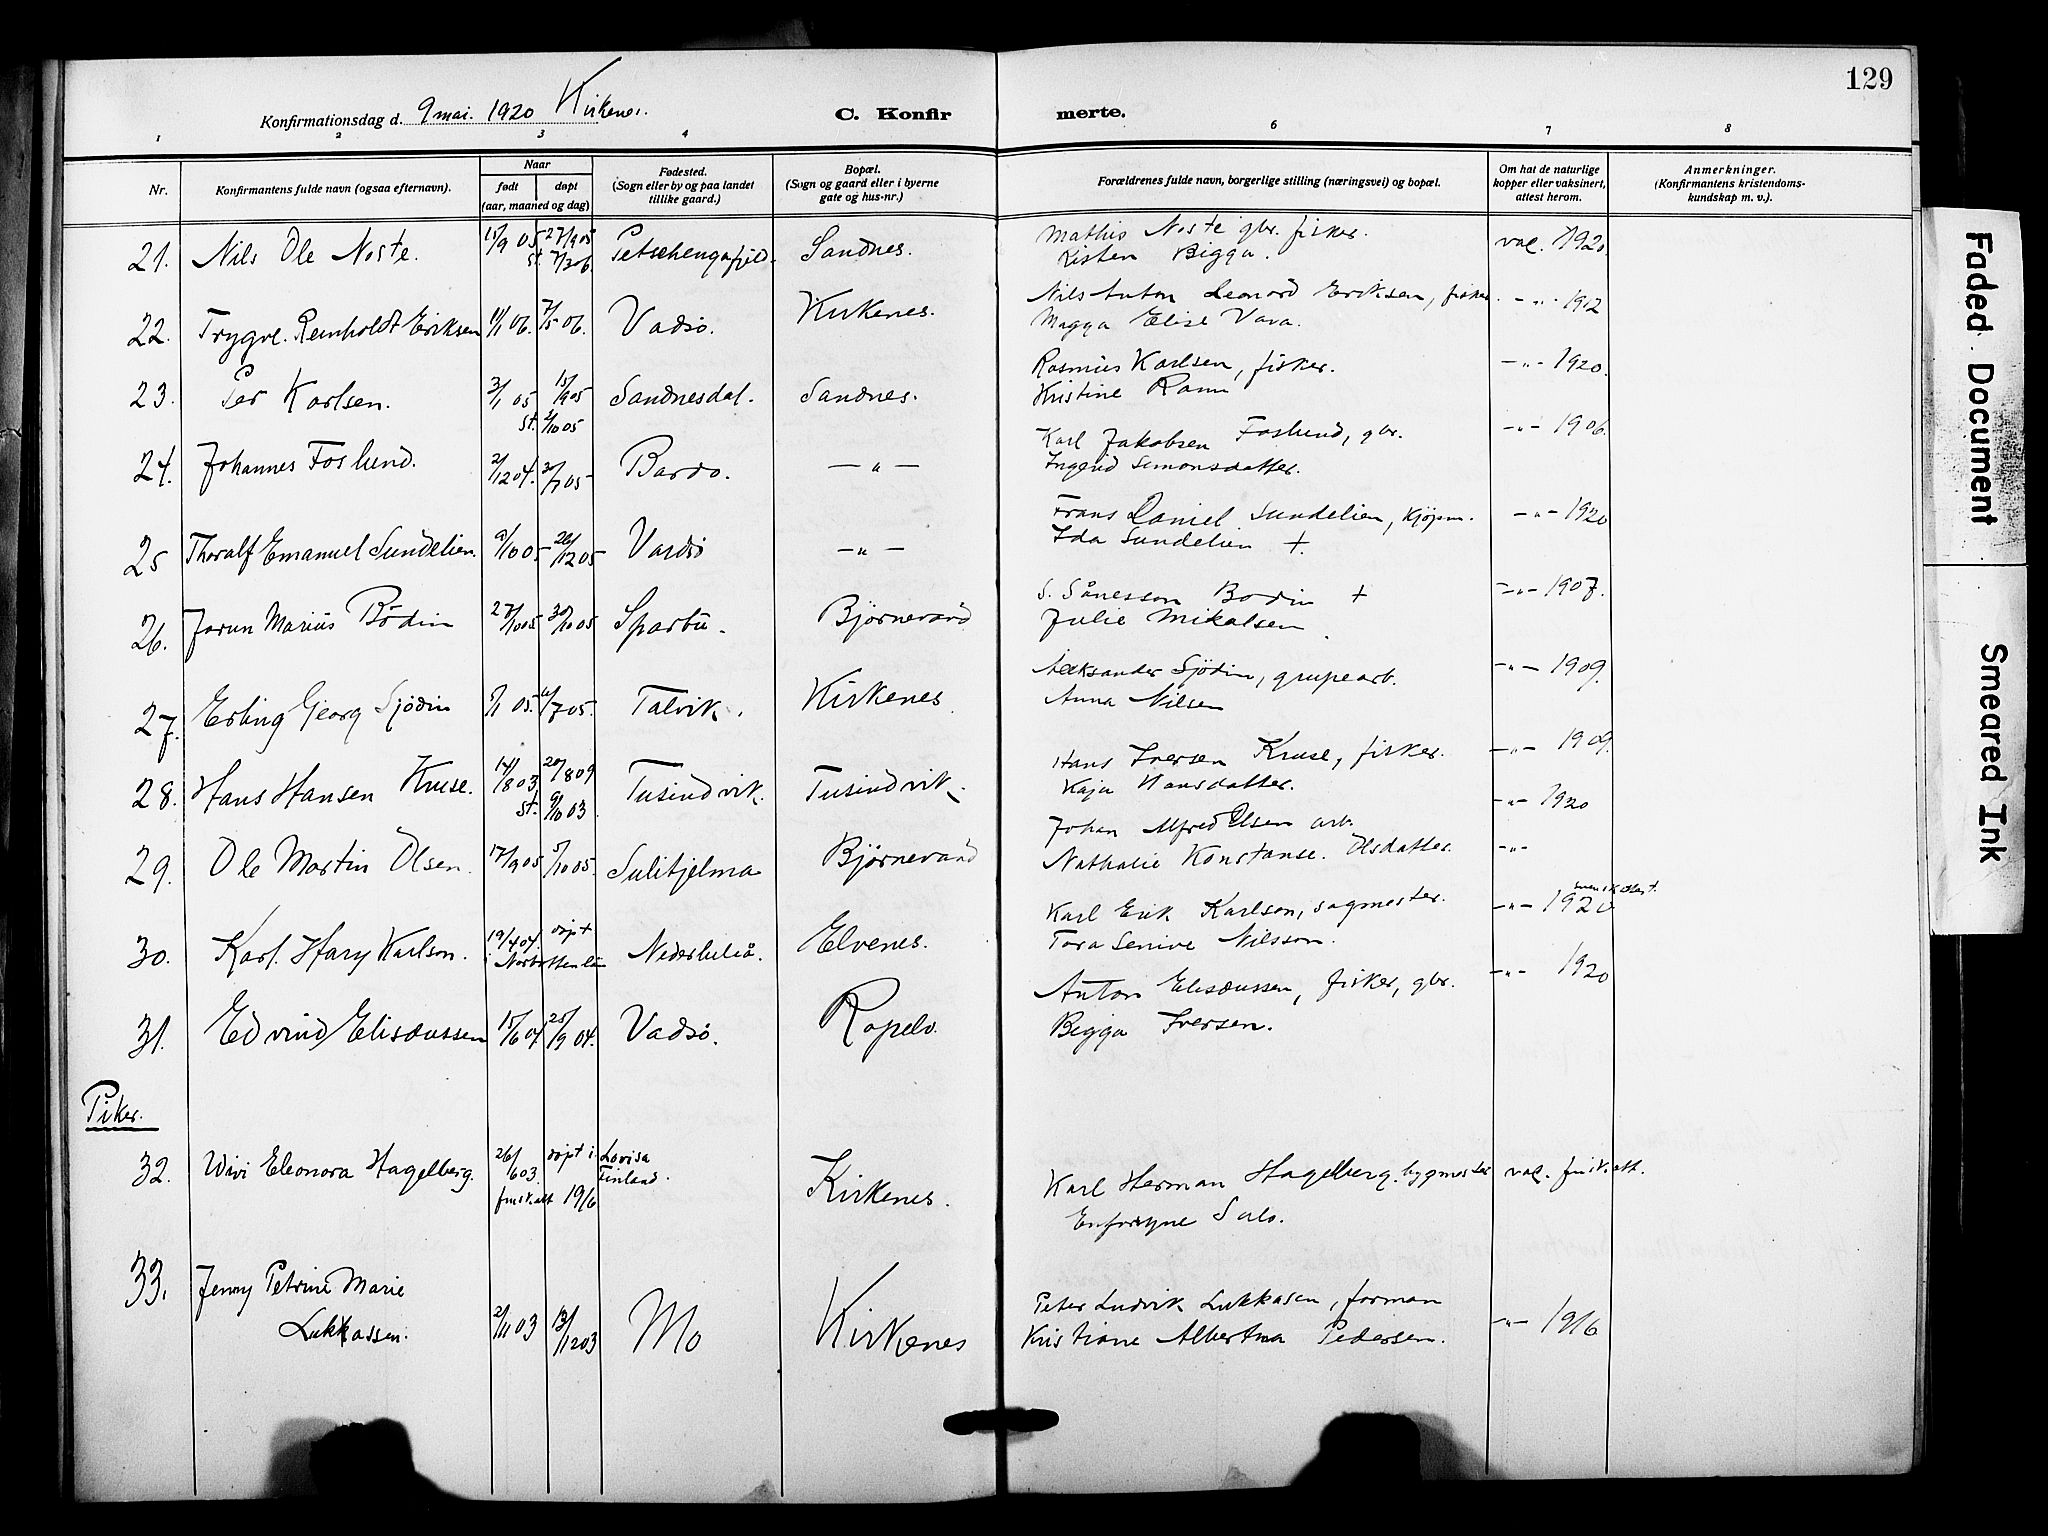 129
Konfirmationsdag d. 9 mai. 1920 Kirkenes.
C. Konfirmerte.
1 2 3 4 5 6 7 8
Nr.
Konfirmantens fulde navn (ogsaa efternavn).
Naar
født
døpt
(aar, maaned og dag)
Fødested.
(Sogn eller by og paa landet
tillike gaard.)
Bopæl.
(Sogn og gaard eller i byerne
gate og hus-nr.)
Forældrenes fulde navn, borgerlige stilling (næringsvei) og bopæl.
Om hat de naturlige
kopper eller vaksinert,
attest herom.
Anmerkninger.
(Konfirmantens kristendoms-
kundskap m. v.).
21. Nils Ole Noste. 15/9 05 27/9 05 st. 7/3 06. Petschengafjeld. Sandnes. Mathis Noste gbr. fisker. vac. 1920.
Kisten Bigga.
22. Trygve. Reinholdt Eriksen 11/1 06. 7/5 06. Vadsö. Kirkenes. Nils Anton Leonard Eriksen, fisker. -"- 1912
Magga Elise Vara.
23. Per Karlsen. 3/1 05 15/9 05 st. 2/10 05 Sandnesdal. Sandnes. Rasmus Karlsen, fisker. -"- 1920.
Kristine Ramn
24. Johannes Foslund. 2/12 04. 30/7 05 Bardo. -"- Karl Jakobsen Foslund, gbr. -"- 1906.
Ingerid Simonsdatter.
25 Thoralf Emanuel Sundelien. 9/10 05 26/12 05 Vardö -"- Frans Daniel Sundelien, kjøpm. -"- 1920
Ida Sundelien +.
26. Marius Bödin 27/10 05 30/10 05 Sparbu. Björnevand S. Sånesson Bodin + -"- 1907.
Julie Mikalsen
27. Erling Georg Sjödin 5/1 05. 6/7 05. Talvik. Kirkenes Aleksander Sjödin, grupearb. -"- 1909.
Anna Nilsen
28. Hans Hansen Kruse. 14/8 03 20/8 09 st. 9/10 03 Tusindvik. Tusindvik. Hans Iversen Kruse, fisker. -"- 1909.
Kaja Hansdatter.
29. Ole Martin Olsen. 17/9 05 5/10 05. Sulitjelma Bjørnevand Johan Alfred Olsen arb. -"- 1920
Nathalie Konstanse. Olsdatter. -"-
30. Karl. Hary Karlson. 19/4 04. døpt i Norbottenlän Nederluleå. Elvenes. Karl Erik Karlson, sagmester. -"- 1920 svensk attest.
Tora Senive Nilsson.
31. Edvind Elisæussen 15/6 04 25/9 04. Vadsö. Ropelv. Anton Elisæussen, fisker, gbr. -"- 1920
Bigga Iversen.
Piker.
32. Wivi Eleonora Hagelberg. 26/6 03. døpt i Lovisa Finland. finsk att 19/6 Kirkenes. Karl Herman Hagelberg. bygmester vac. finsk att.
Salo.
33. Jenny Petrine Marie
Lukkassen. 2/11 03 13/12 03 Mo Kirkenes Peter Ludvik Lukkasen, forman -"- 1916
Kristiane Albertina Pedersen.
Faded Document
Smeared Ink